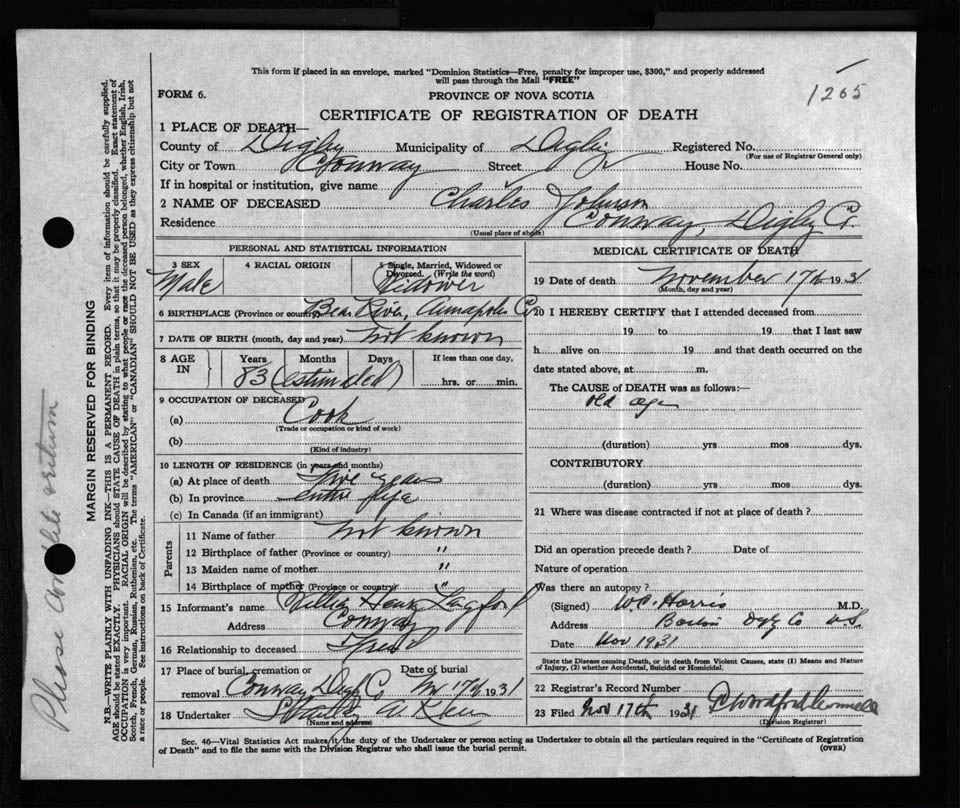 This form if placed in an envelope, marked "Dominion Statistics—Free, penalty for improper use, $300," and properly addressed
will pass through the Mail "FREE"
1265
FORM 6.
PROVINCE OF NOVA SCOTIA
CERTIFICATE OF REGISTRATION OF DEATH
1 PLACE OF DEATH—
County of Digby Municipality of Digby Registered No.
(For use of Registrar General only)
City or Town Conway Street House No.
If in hospital or institution, give name
2 NAME OF DECEASED Charles Johnson
Residence Conway, Digby Co.
(Usual place of abode)
PERSONAL AND STATISTICAL INFORMATION
3 SEX Male
4 RACIAL ORIGIN
5 Single, Married, Widowed or Divorced. (Write the word)
Widower
6 BIRTHPLACE (Province or country) Bear River, Annapolis Co.
7 DATE OF BIRTH (month, day and year) Not known
8 AGE IN Years Months Days If less than one day,
83 (estimated) hrs. or min.
9 OCCUPATION OF DECEASED
(a) Cook
(Trade or occupation or kind of work)
(b)
(Kind of industry)
10 LENGTH OF RESIDENCE (in years and months)
(a) At place of death Five years
(b) In province entire life
(c) In Canada (if an immigrant)
Parents
11 Name of father Not known
12 Birthplace of father (Province or country) "
13 Maiden name of mother "
14 Birthplace of mother (Province or country) "
15 Informant's name Henry Langford
Address Conway
16 Relationship to deceased Friend
17 Place of burial, cremation or removal Conway Digby Co Date of burial Nov 17th 1931
18 Undertaker
(Name and address)
MEDICAL CERTIFICATE OF DEATH
19 Date of death November 17th 1931
(Month, day and year)
20 I HEREBY CERTIFY that I attended deceased from
19 to 19 that I last saw
h alive on 19 and that death occurred on the
date stated above, at m.
The CAUSE OF DEATH was as follows:—
old age
(duration) yrs mos dys.
CONTRIBUTORY
(duration) yrs mos dys.
21 Where was disease contracted if not at place of death?
Did an operation precede death? Date of
Nature of operation
Was there an autopsy?
(Signed) W.C. Harris M.D.
Address Co N.S.
Date Nov 1931
State the Disease causing Death, or in death from Violent Causes, state (1) Means and Nature
of Injury, (2) whether Accidental, Suicidal or Homicidal.
22 Registrar's Record Number
23 Filed Nov 17th 1931
(Division Registrar)
Sec. 46—Vital Statistics Act makes it the duty of the Undertaker or person acting as Undertaker to obtain all the particulars required in the "Certificate of Registration
of Death" and to file the same with the Division Registrar who shall issue the burial permit. (OVER)
Please complete & return
MARGIN RESERVED FOR BINDING
N.B.—WRITE PLAINLY WITH UNFADING INK—THIS IS A PERMANENT RECORD. Every item of information should be carefully supplied.
AGE should be stated EXACTLY. PHYSICIANS should STATE CAUSE OF DEATH in plain terms, so that it may be properly classified. Exact statement of
OCCUPATION is very important. RACIAL ORIGIN will be described by stating to what people or race the deceased person belonged, whether English, Irish,
Scotch, French, German, Russian, Ruthenian, etc. The terms "AMERICAN" or "CANADIAN" SHOULD NOT BE USED as they express citizenship but not
a race or people. See instructions on back of Certificate.